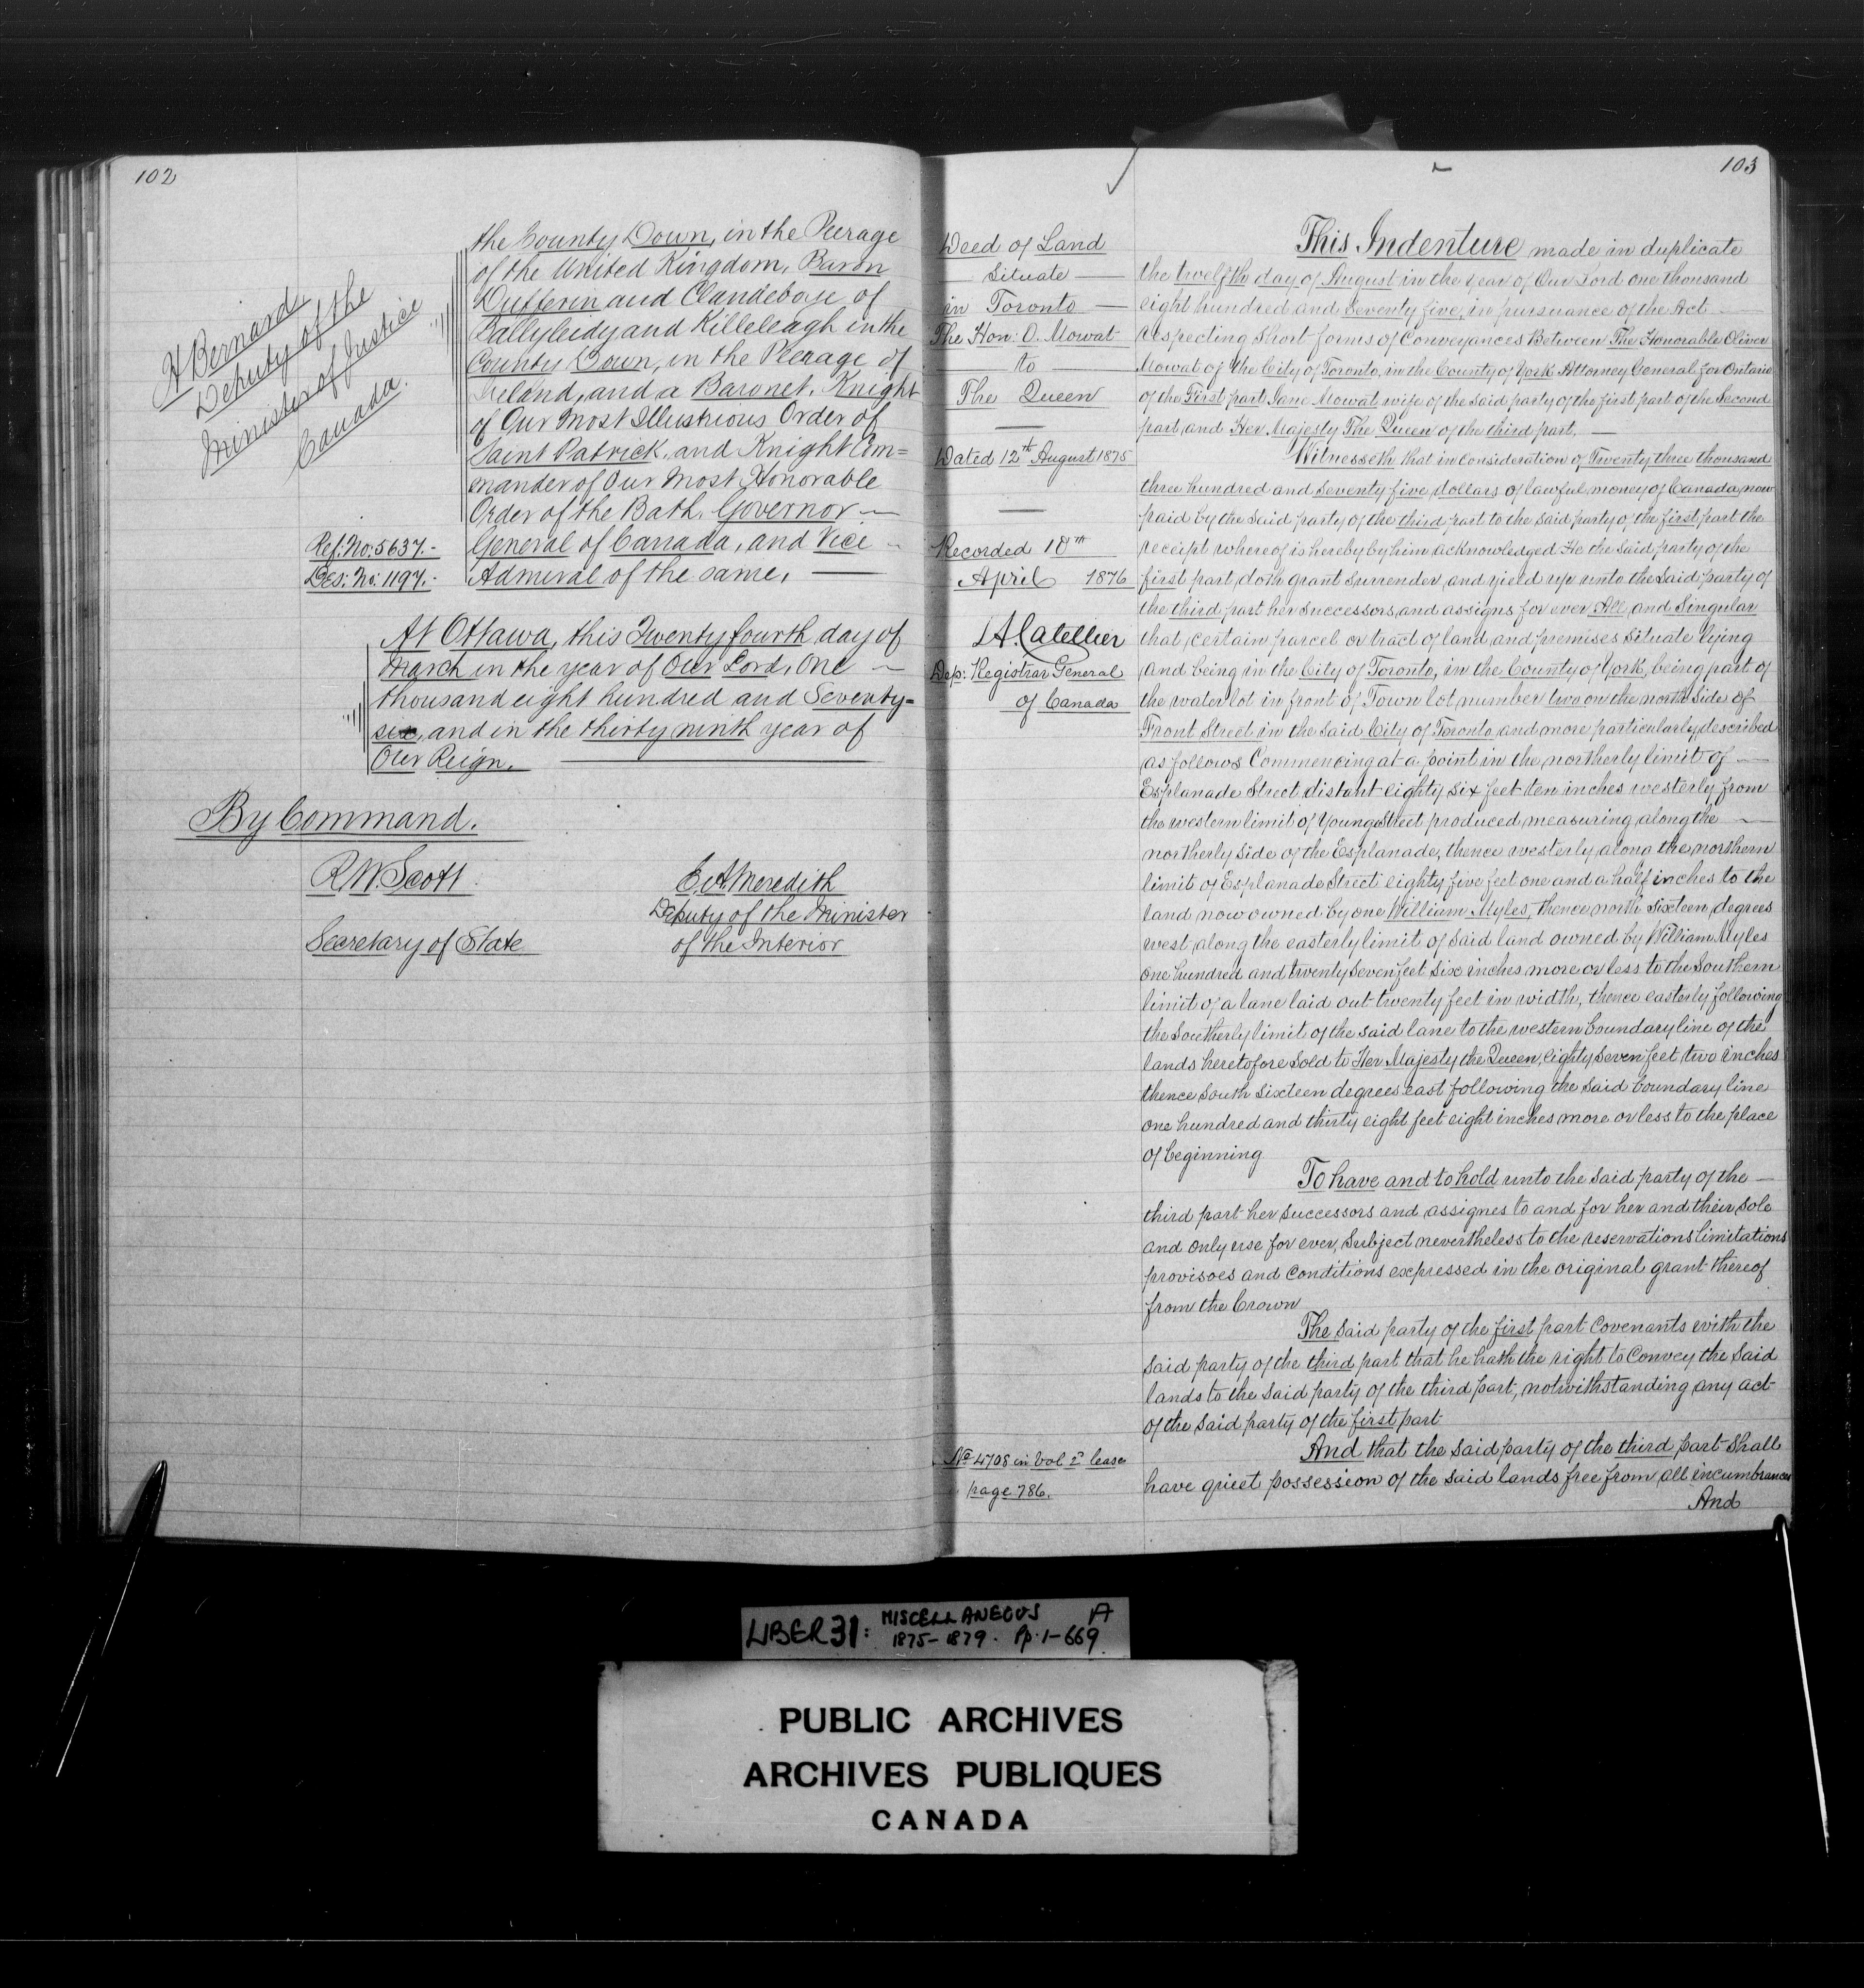 102
H Bernard
Deputy of the
Minister of Justice
Canada.
the County Down, in the Peerage
of the United Kingdom, Baron
Dufferin and Clandeboye, of
Ballyleidy and Killeleagh in the
County Down, in the Peerage of
Ireland, and a Baronet, Knight
of Our Most Illustrious Order of
Saint Patrick, and Knight Com=
mander of Our Most Honorable
Order of the Bath, Governor
General of Canada, and Vice
Admiral of the same.
Ref: No: 5637.
Des: No: 1197.
At Ottawa, this Twenty fourth day of
March in the year of Our Lord, One
thousand eight hundred and Seventy=
six, and in the thirty ninth year of
Our Reign.
By Command.
R W. Scott
Secretary of State
E. A. Meredith
Deputy of the Minister
of the Interior
103
Deed of Land
Situate
in Toronto
The Hon: O. Mowat
to
The Queen
Dated 12th August 1875
Recorded 18th
April 1876
L A Catellier
Dep: Registrar General
of Canada
No 4708 in Vol 2nd lease
page 786.
This Indenture made in duplicate
the twelfth day of August in the year of Our Lord one thousand
eight hundred and Seventy five, in pursuance of the Act
respecting Short forms of Conveyances Between The Honorable Oliver
Mowat of the City of Toronto, in the County of York Attorney General for Ontario
of the First part Jane Mowat wife of the said party of the first part of the Second
part, and Her Majesty The Queen of the third part.
Witnesseth that in Consideration of Twenty three thousand
three hundred and seventy five dollars of lawful money of Canada now
paid by the said party of the third part to the said party of the first part the
receipt whereof is hereby by him acknowledged He the said party of the
first part, doth grant surrender, and yield up unto the said party of
the third part her successors, and assigns for ever All, and Singular
that, certain parcel or tract of land, and premises situate lying
and being in the City of Toronto, in the County of York, being part of
the water lot in front of Town lot number two on the north side of
Front Street in the said City of Toronto, and more particularly, described
as follows Commencing at a point in the northerly limit of
Esplanade Street, distant eighty six feet ten inches westerly from
the western limit of Younge Street produced measuring along the
northerly side of the Esplanade, thence westerly along the northern
limit of Esplanade Street eighty five feet one and a half inches to the
land now owned by one William Myles, thence north Sixteen degrees
west along the easterly limit of said land owned by William Myles
one hundred and twenty seven feet six inches more or less to the Southern
limit of a lane laid out twenty feet in width, thence easterly following
the Southerly limit of the said lane to the western boundary line of the
lands heretofore sold to Her Majesty the Queen, eighty seven feet two inches
thence South sixteen degrees east following the said boundary line
one hundred and thirty eight feet eight inches more or less to the place
of beginning
To have and to hold unto the said party of the
third part her successors and assignes to and for her and their sole
and only use for ever, Subject nevertheless to the reservations limitations
provisoes and conditions expressed in the original grant thereof
from the Crown
The said party of the first part Covenants with the
said party of the third part that he hath the right to Convey the said
lands to the said party of the third part, notwithstanding any act
of the said party of the first part
And that the said party of the third part Shall
have quiet possession of the said lands free from all incumbrances
And
LIBER 31: MISCELLANEOUS A
1875-1879. Pp. 1-669.
PUBLIC ARCHIVES
ARCHIVES PUBLIQUES
CANADA